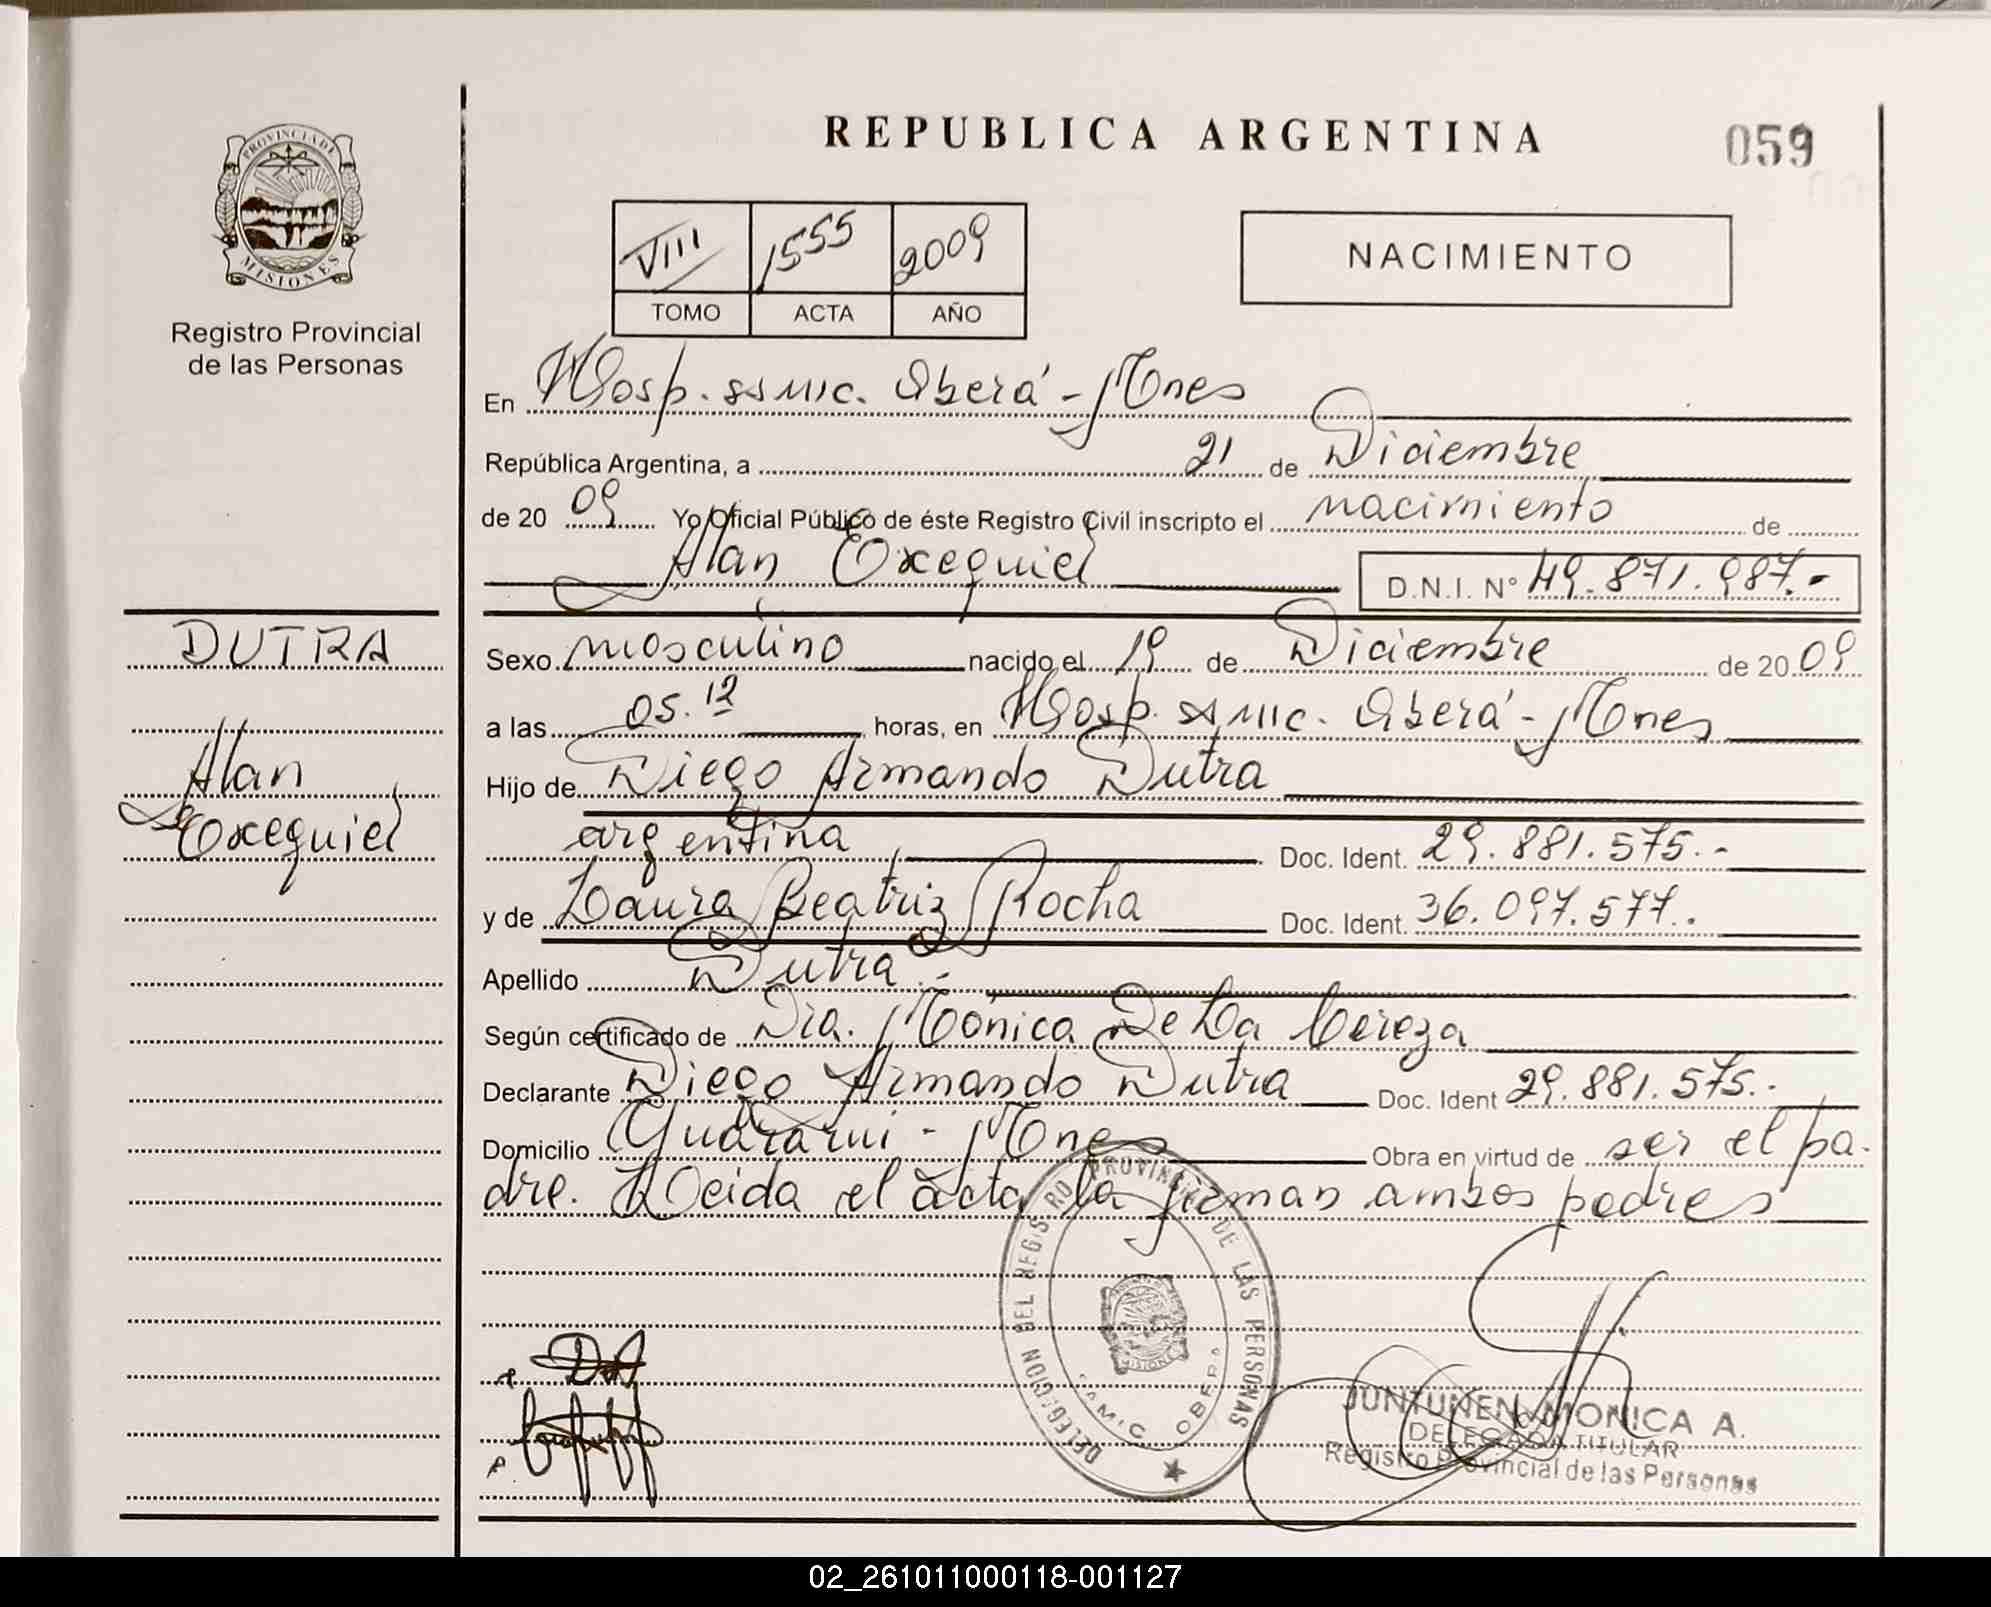 REPUBLICA ARGENTINA
059
PROVINCIA DE
MISIONES
Registro Provincial
de las Personas
VIII 1555 2009
TOMO ACTA AÑO
NACIMIENTO
En Hosp. SAMIC. Oberá - Mnes
República Argentina, a 21 de Diciembre
de 20 09 Yo Oficial Público de éste Registro Civil inscripto el nacimiento de
Alan Exequiel D.N.I. N° 49.871.987.-
DUTRA
Alan
Exequiel
Sexo masculino nacido el 19 de Diciembre de 20 09
a las 05.12 horas, en Hosp. SAMIC. Oberá - Mnes
Hijo de Diego Armando Dutra
argentina Doc. Ident. 29.881.575.-
y de Laura Beatriz Rocha Doc. Ident. 36.097.577.
Apellido Dutra.-
Según certificado de Dra. Mónica De La Cereza
Declarante Diego Armando Dutra Doc. Ident 29.881.575.-
Domicilio Guaraní - Mnes Obra en virtud de ser el pa-
dre. Leida el acta la firman ambos padres
DELEGACION DEL REGISTRO PROVINCIAL DE LAS PERSONAS
MISIONES
SAMIC OBERA
JUNTUNEN MONICA A.
DELEGADA TITULAR
Registro Provincial de las Personas
02_261011000118-001127